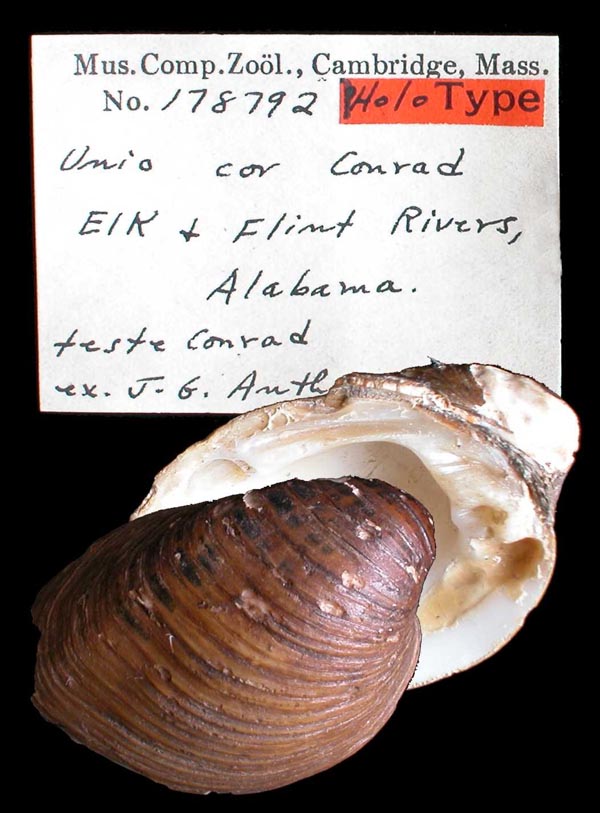 Mus. Comp. Zoöl., Cambridge, Mass.
No. 178792 HoloType
Unio cor Conrad
Elk & Flint Rivers,
Alabama.
teste Conrad
ex. J. G. Anth